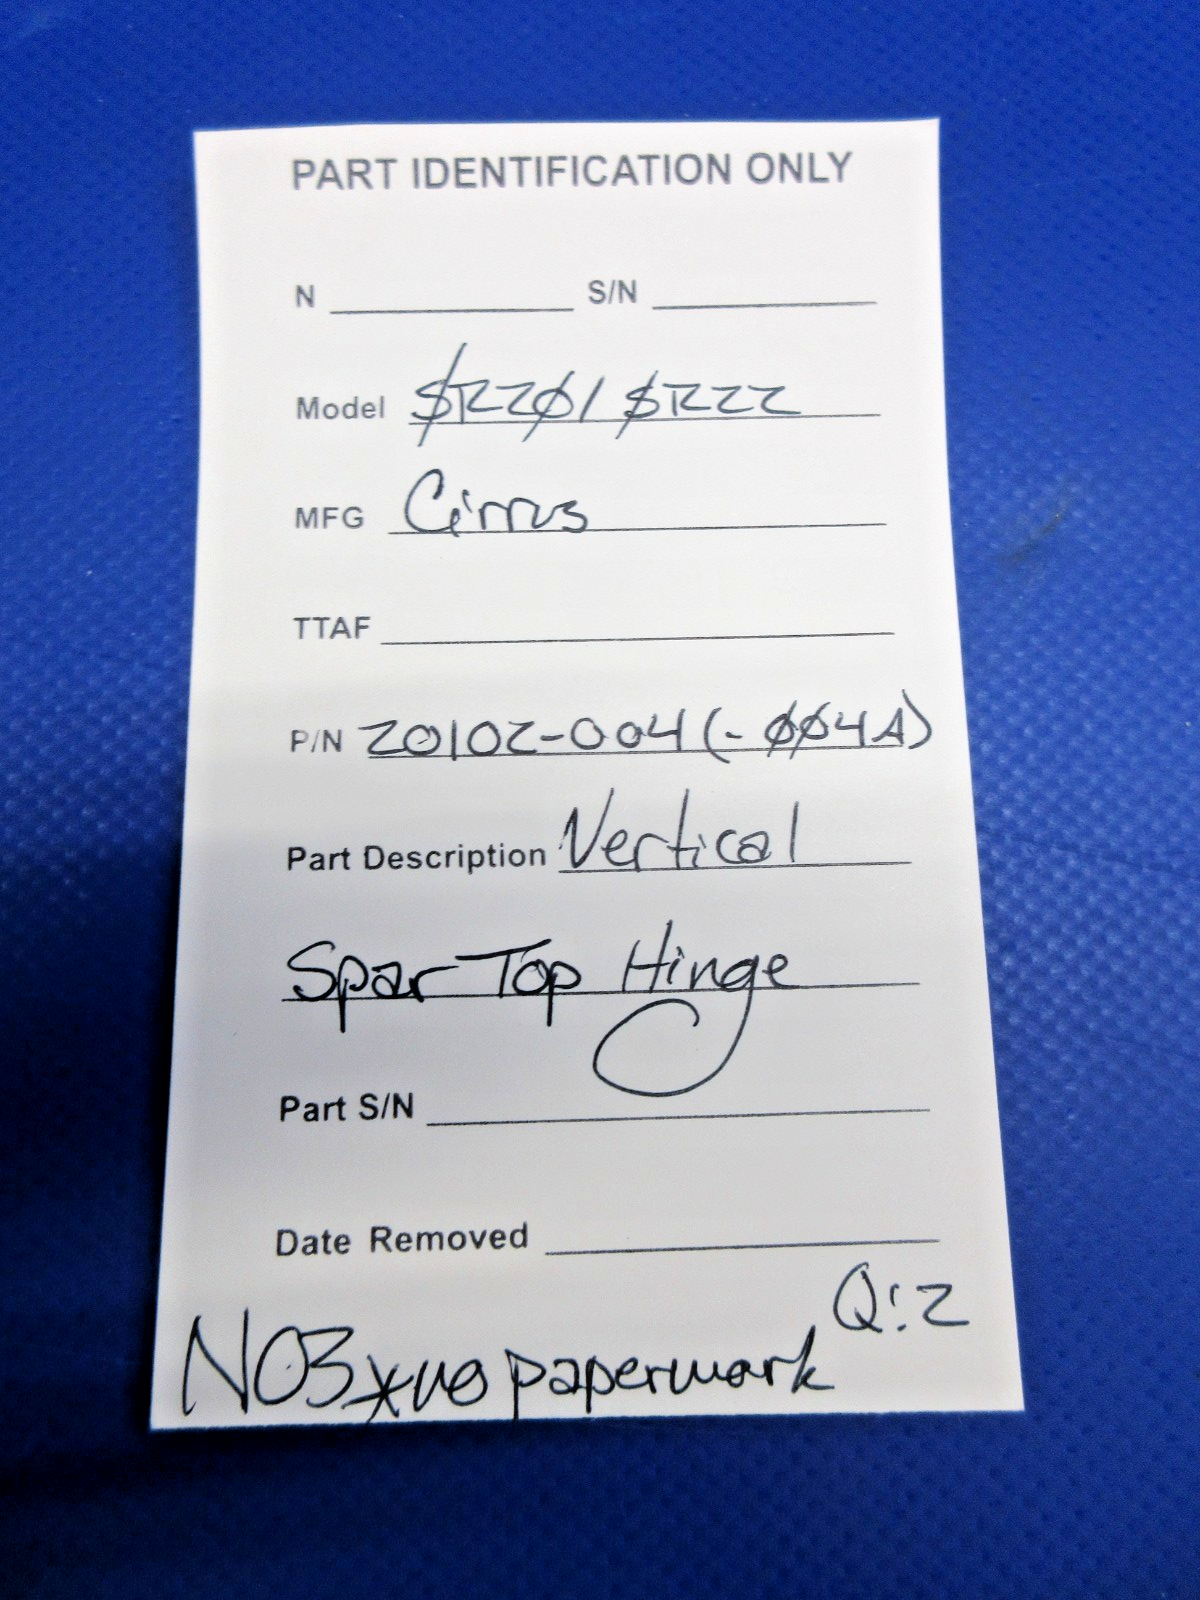 PART IDENTIFICATION ONLY
N S/N
Model SR2Ø/SR22
MFG Cirrus
TTAF
P/N 20102-004 (-ØØ4A)
Part Description Vertical
Spar Top Hinge
Part S/N
Date Removed
Q:2
NOS *no paperwork